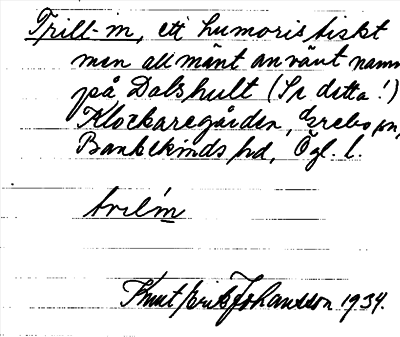 Trill-in, ett humoristiskt
men allmänt använt namn
på Dalshult (Se detta!)
Klockaregården, Grebo sn,
Bankekinds hd, Ögl. l.
trilín
Knut Erik Johansson 1934.